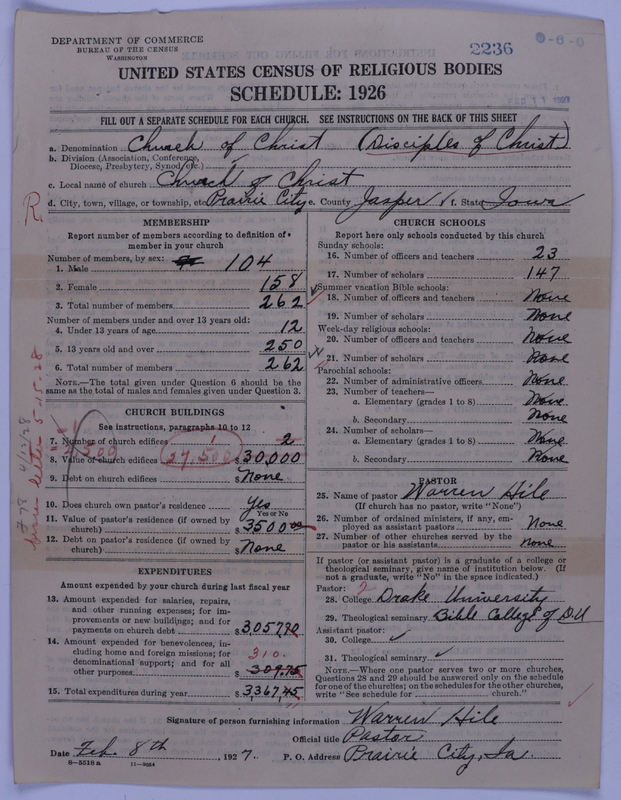 DEPARTMENT OF COMMERCE
BUREAU OF THE CENSUS
WASHINGTON
2236
UNITED STATES CENSUS OF RELIGIOUS BODIES
SCHEDULE: 1926
FILL OUT A SEPARATE SCHEDULE FOR EACH CHURCH. SEE INSTRUCTIONS ON THE BACK OF THIS SHEET
a. Denomination Church of Christ (Disciples of Christ)
b. Division (Association, Conference, Diocese, Presbytery, Synod, etc.)
c. Local name of church Church of Christ
d. City, town, village, or township, etc. Prairie City e. County Jasper f. State Iowa
R
MEMBERSHIP
Report number of members according to definition of member in your church
Number of members, by sex:
1. Male 104
2. Female 158
3. Total number of members 262
Number of members under and over 13 years old:
4. Under 13 years of age 12
5. 13 years old and over 250
6. Total number of members 262
NOTE.—The total given under Question 6 should be the
same as the total of males and females given under Question 3.
CHURCH BUILDINGS
See instructions, paragraphs 10 to 12
7. Number of church edifices 1 2
8. Value of church edifices 27,500 $30,000
9. Debt on church edifices $None
10. Does church own pastor's residence Yes
Yes or No
11. Value of pastor's residence (if owned by
church) $3500.00
12. Debt on pastor's residence (if owned by
church) $None
EXPENDITURES
Amount expended by your church during last fiscal year
13. Amount expended for salaries, repairs,
and other running expenses; for im-
provements or new buildings; and for
payments on church debt $3057.70
14. Amount expended for benevolences, in-
cluding home and foreign missions; for
denominational support; and for all
other purposes 310. $309.75
15. Total expenditures during year $3367.45
CHURCH SCHOOLS
Report here only schools conducted by this church
Sunday schools:
16. Number of officers and teachers 23
17. Number of scholars 147
Summer vacation Bible schools:
18. Number of officers and teachers None
19. Number of scholars None
Week-day religious schools:
20. Number of officers and teachers None
21. Number of scholars None
Parochial schools:
22. Number of administrative officers None
23. Number of teachers—
a. Elementary (grades 1 to 8) None
b. Secondary None
24. Number of scholars—
a. Elementary (grades 1 to 8) None
b. Secondary None
PASTOR
25. Name of pastor Warren Hile
(If church has no pastor, write "None")
26. Number of ordained ministers, if any, em-
ployed as assistant pastors None
27. Number of other churches served by the
pastor or his assistants None
If pastor (or assistant pastor) is a graduate of a college or
theological seminary, give name of institution below. (If
not a graduate, write "No" in the space indicated.)
Pastor:
28. College Drake University
29. Theological seminary Bible College of D.U
Assistant pastor:
30. College
31. Theological seminary
NOTE.—Where one pastor serves two or more churches,
Questions 28 and 29 should be answered only on the schedule
for one of the churches; on the schedules for the other churches,
write "See schedule for church."
Signature of person furnishing information Warren Hile
Official title Pastor
Date Feb. 8th, 1927. P. O. Address Prairie City, Ia.
8-5518 a 11-9054